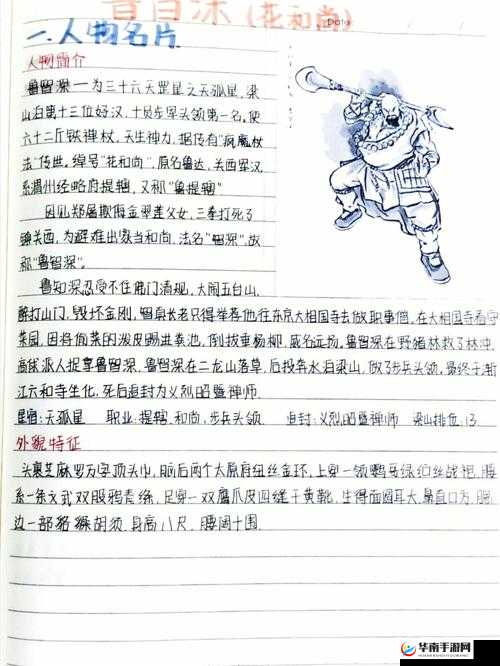 鲁智深(花和尚)
Date
一.人物名片
人物简介
鲁智深一为三十六天罡星之天孤星,梁
山泊第十三位好汉,十员步军头领第一名,使
六十二斤铁禅杖,天生神力,据传有"疯魔杖
法"传世,绰号"花和尚",原名鲁达,关西军汉,
系渭州经略府提辖,又称"鲁提辖"
因见郑屠欺侮金翠莲父女,三拳打死了
镇关西,为避难出家当和尚,法名"智深",故
称"鲁智深"。
鲁智深忍受不住佛门清规,大闹五台山,
醉打山门,毁坏金刚,智真长老只得举荐他往东京大相国寺去做职事僧,在大相国寺看守
菜园,因将偷菜的泼皮踢进粪池,倒拔垂杨柳,威名远扬,鲁智深在野猪林救了林冲,
高俅派人捉拿鲁智深,鲁智深在二龙山落草,后投奔水泊梁山,做了步兵头领,最终于浙
江六和寺坐化,死后追封为义烈昭暨禅师.
星宿:天孤星 职业:提辖,和尚,步兵头领. 追封:义烈昭暨禅师 梁山排位:13
外貌特征
头裹芝麻罗万字顶头巾,脑后两个太原府纽丝金环,上穿一领鹦哥绿纻丝战袍,腰
系一条文武双股鸦青绦,足穿一双鹰爪皮四缝干黄靴,生得面圆耳大,鼻直口方,腮
边一部貉䝙胡须,身高八尺,腰阔十围.
华南手游网